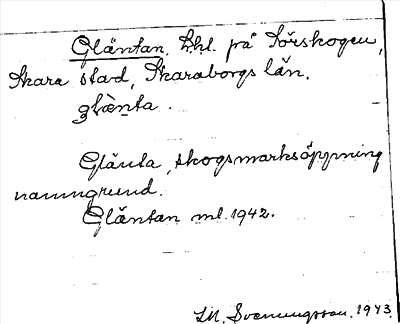 Gläntan, lhl. på Sörskogen,
Skara stad, Skaraborgs län.
glæ̀nta.
Glänta, skogsmarksöppning
namngrund.
Gläntan ml. 1942.
I.M. Svenungsson. 1943.